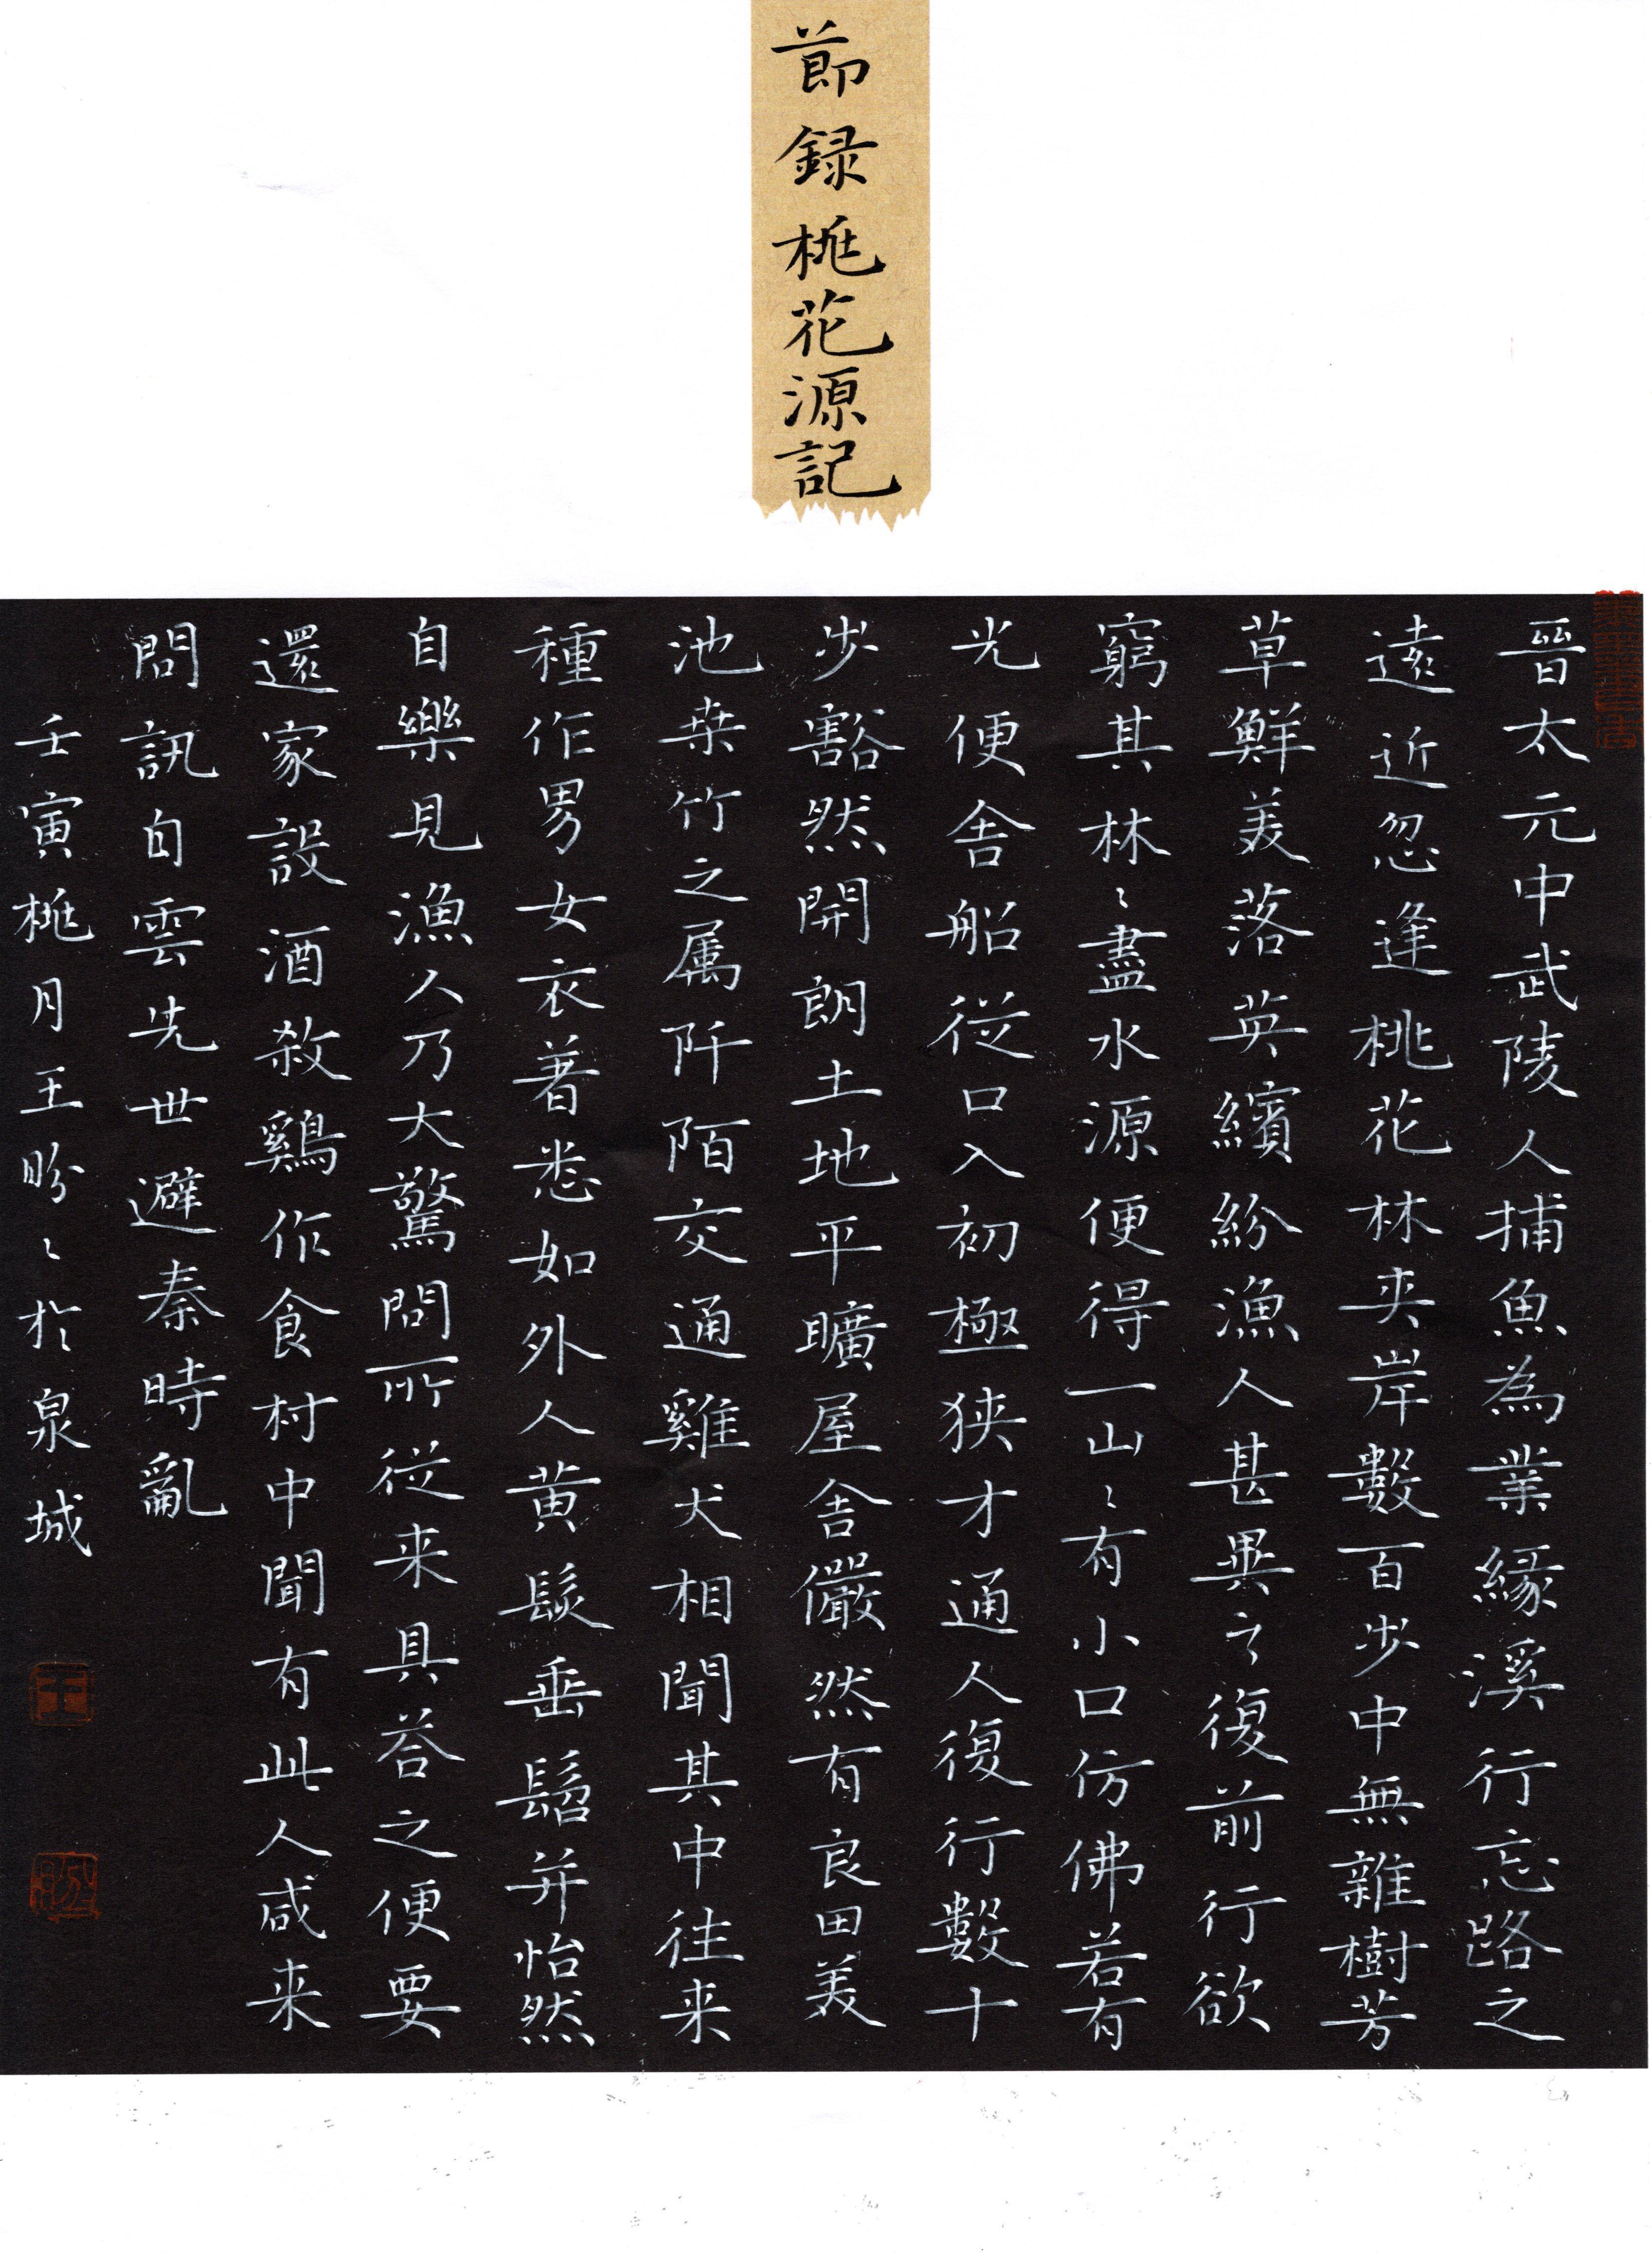 節録桃花源記
晉太元中武陵人捕魚為業緣溪行忘路之
遠近忽逢桃花林夾岸數百步中無雜樹芳
草鮮美落英繽紛漁人甚異之復前行欲
窮其林〻盡水源便得一山〻有小口仿佛若有
光便舍船從口入初極狹才通人復行數十
步豁然開朗土地平曠屋舍儼然有良田美
池桒竹之属阡陌交通雞犬相聞其中往来
種作男女衣著悉如外人黄髮垂髫并怡然
自樂見漁人乃大驚問所從来具荅之便要
還家設酒殺鷄作食村中聞有此人咸来
問訊自雲先世避秦時亂
壬寅桃月王盼〻於泉城
王